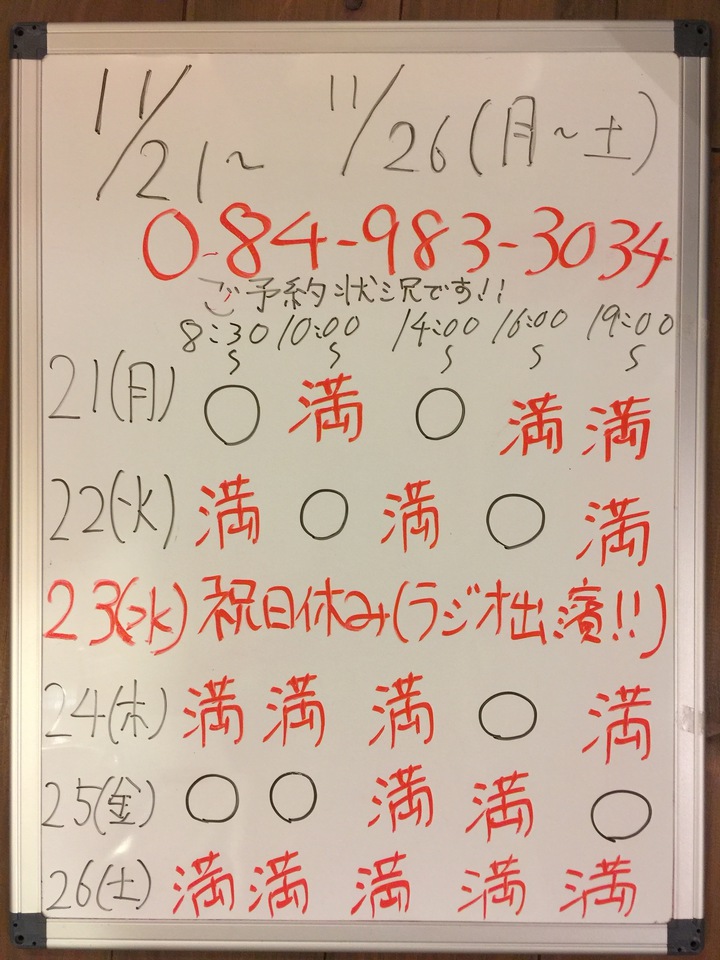 11/21~ 11/26(月~土)
0-84-983-3034
ご予約状況です!!
8:30~ 10:00~ 14:00~ 16:00~ 19:00~
21(月) ○ 満 ○ 満 満
22(火) 満 ○ 満 ○ 満
23(水) 祝日休み(ラジオ出演!!)
24(木) 満 満 満 ○ 満
25(金) ○ ○ 満 満 ○
26(土) 満 満 満 満 満